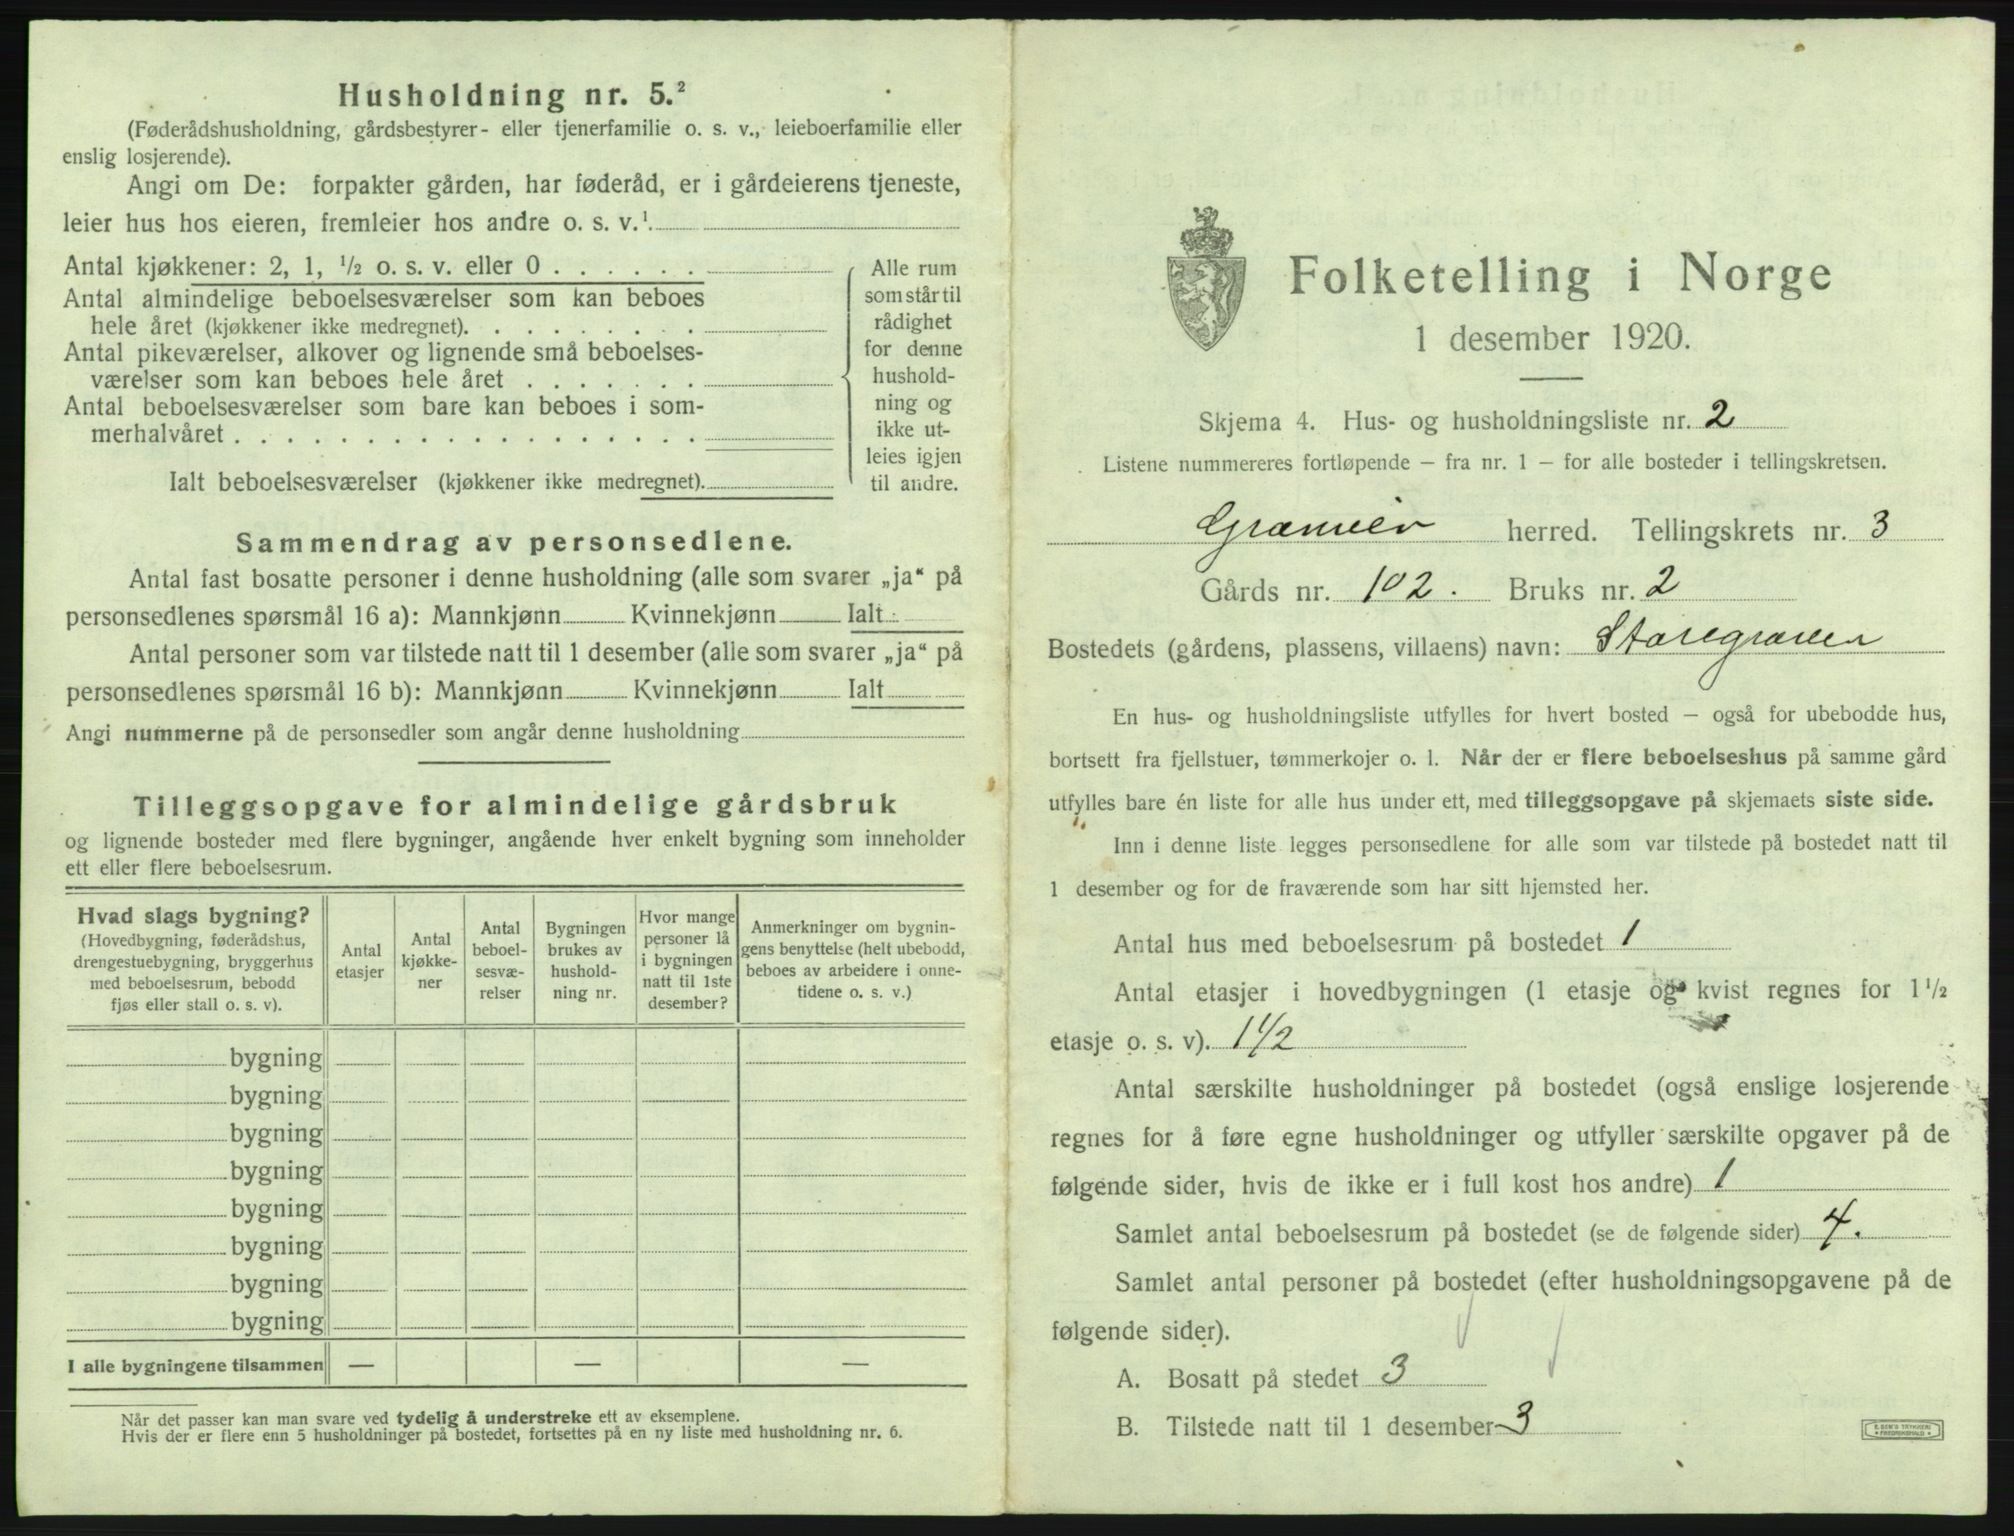 Husholdning nr. 5.²
(Føderådshusholdning, gårdsbestyrer- eller tjenerfamilie o. s. v., leieboerfamilie eller
enslig losjerende).
Angi om De: forpakter gården, har føderåd, er i gårdeierens tjeneste,
leier hus hos eieren, fremleier hos andre o. s. v.¹
Antal kjøkkener: 2, 1, ½ o. s. v. eller 0 . . . . . .
Antal almindelige beboelsesværelser som kan beboes
hele året (kjøkkener ikke medregnet). . . . . . . . .
Antal pikeværelser, alkover og lignende små beboelses-
værelser som kan beboes hele året . . . . . . .
Antal beboelsesværelser som bare kan beboes i som-
merhalvåret . . . . . . . . . . . . . . . . . .
Ialt beboelsesværelser (kjøkkener ikke medregnet).
Alle rum
som står til
rådighet
for denne
hushold-
ning og
ikke ut-
leies igjen
til andre.
Sammendrag av personsedlene.
Antal fast bosatte personer i denne husholdning (alle som svarer „ja“ på
personsedlenes spørsmål 16 a): Mannkjønn Kvinnekjønn Ialt
Antal personer som var tilstede natt til 1 desember (alle som svarer „ja“ på
personsedlenes spørsmål 16 b): Mannkjønn Kvinnekjønn Ialt
Angi nummerne på de personsedler som angår denne husholdning
Tilleggsopgave for almindelige gårdsbruk
og lignende bosteder med flere bygninger, angående hver enkelt bygning som inneholder
ett eller flere beboelsesrum.
Hvad slags bygning?
(Hovedbygning, føderådshus,
drengestuebygning, bryggerhus
med beboelsesrum, bebodd
fjøs eller stall o. s. v).
Antal
etasjer
Antal
kjøkke-
ner
Antal
beboel-
sesvæ-
relser
Bygningen
brukes av
hushold-
ning nr.
Hvor mange
personer lå
i bygningen
natt til 1ste
desember?
Anmerkninger om bygnin-
gens benyttelse (helt ubebodd,
beboes av arbeidere i onne-
tidene o. s. v.)
bygning
bygning
bygning
bygning
bygning
bygning
bygning
bygning
I alle bygningene tilsammen — — —
Når det passer kan man svare ved tydelig å understreke ett av eksemplene.
Hvis der er flere enn 5 husholdninger på bostedet, fortsettes på en ny liste med husholdning nr. 6.
Folketelling i Norge
1 desember 1920.
Skjema 4. Hus- og husholdningsliste nr. 2
Listene nummereres fortløpende — fra nr. 1 — for alle bosteder i tellingskretsen.
herred. Tellingskrets nr. 3
Gårds nr. 102. Bruks nr. 2
Bostedets (gårdens, plassens, villaens) navn:
En hus- og husholdningsliste utfylles for hvert bosted — også for ubebodde hus,
bortsett fra fjellstuer, tømmerkojer o. l. Når der er flere beboelseshus på samme gård
utfylles bare én liste for alle hus under ett, med tilleggsopgave på skjemaets siste side.
Inn i denne liste legges personsedlene for alle som var tilstede på bostedet natt til
1 desember og for de fraværende som har sitt hjemsted her.
Antal hus med beboelsesrum på bostedet 1
Antal etasjer i hovedbygningen (1 etasje og kvist regnes for 1½
etasje o. s. v). 1½
Antal særskilte husholdninger på bostedet (også enslige losjerende
regnes for å føre egne husholdninger og utfyller særskilte opgaver på de
følgende sider, hvis de ikke er i full kost hos andre) 1
Samlet antal beboelsesrum på bostedet (se de følgende sider) 4.
Samlet antal personer på bostedet (efter husholdningsopgavene på de
følgende sider).
A. Bosatt på stedet 3
B. Tilstede natt til 1 desember 3